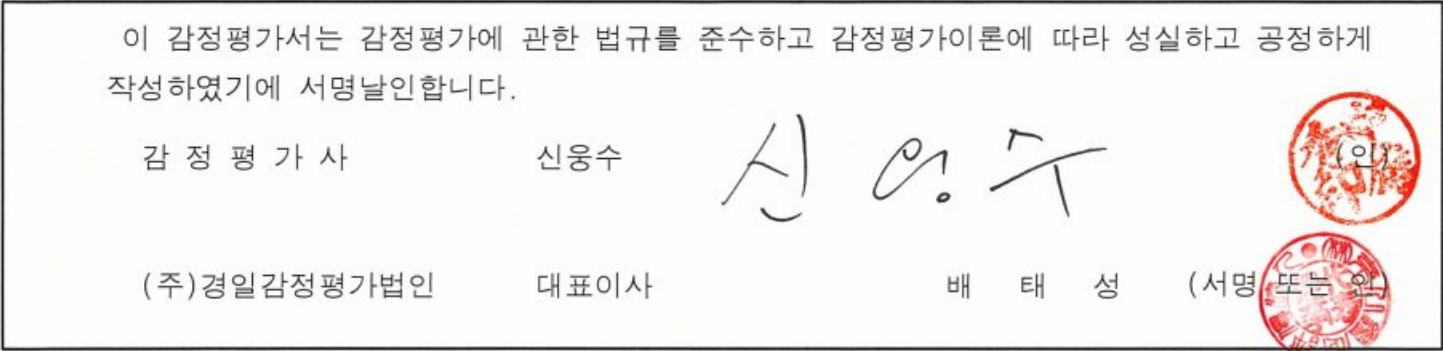 이 감정평가서는 감정평가에 관한 법규를 준수하고 감정평가이론에 따라 성실하고 공정하게
작성하였기에 서명날인합니다.
감 정 평 가 사 신웅수 신웅수 (인)
(주)경일감정평가법인 대표이사 배 태 성 (서명 또는 인)